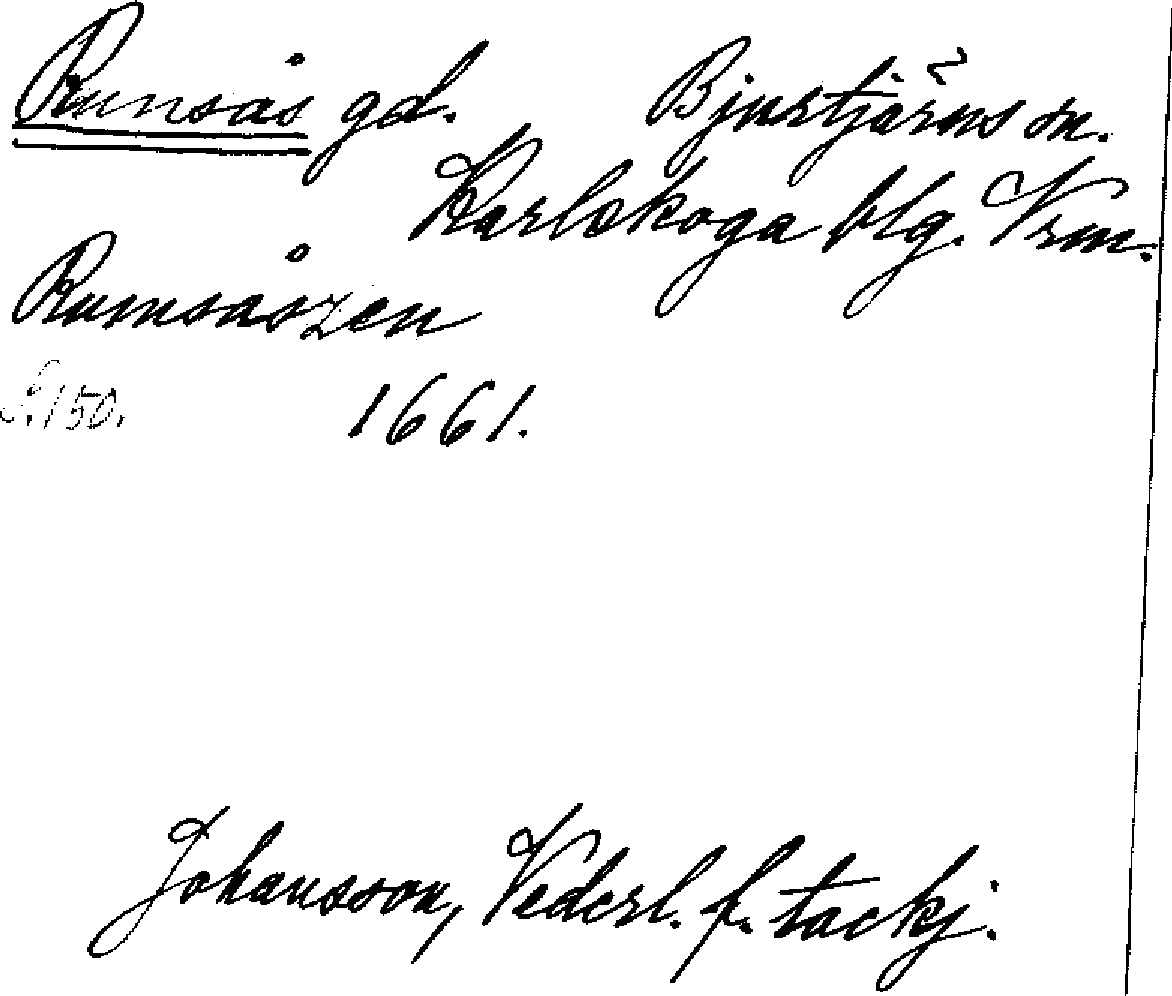 Runsås gd. Bjurtjärns sn.
Karlskoga blg. Vrm.
Rumsåszen
S. 150. 1661.
Johansson, Vederl. f. tackj.